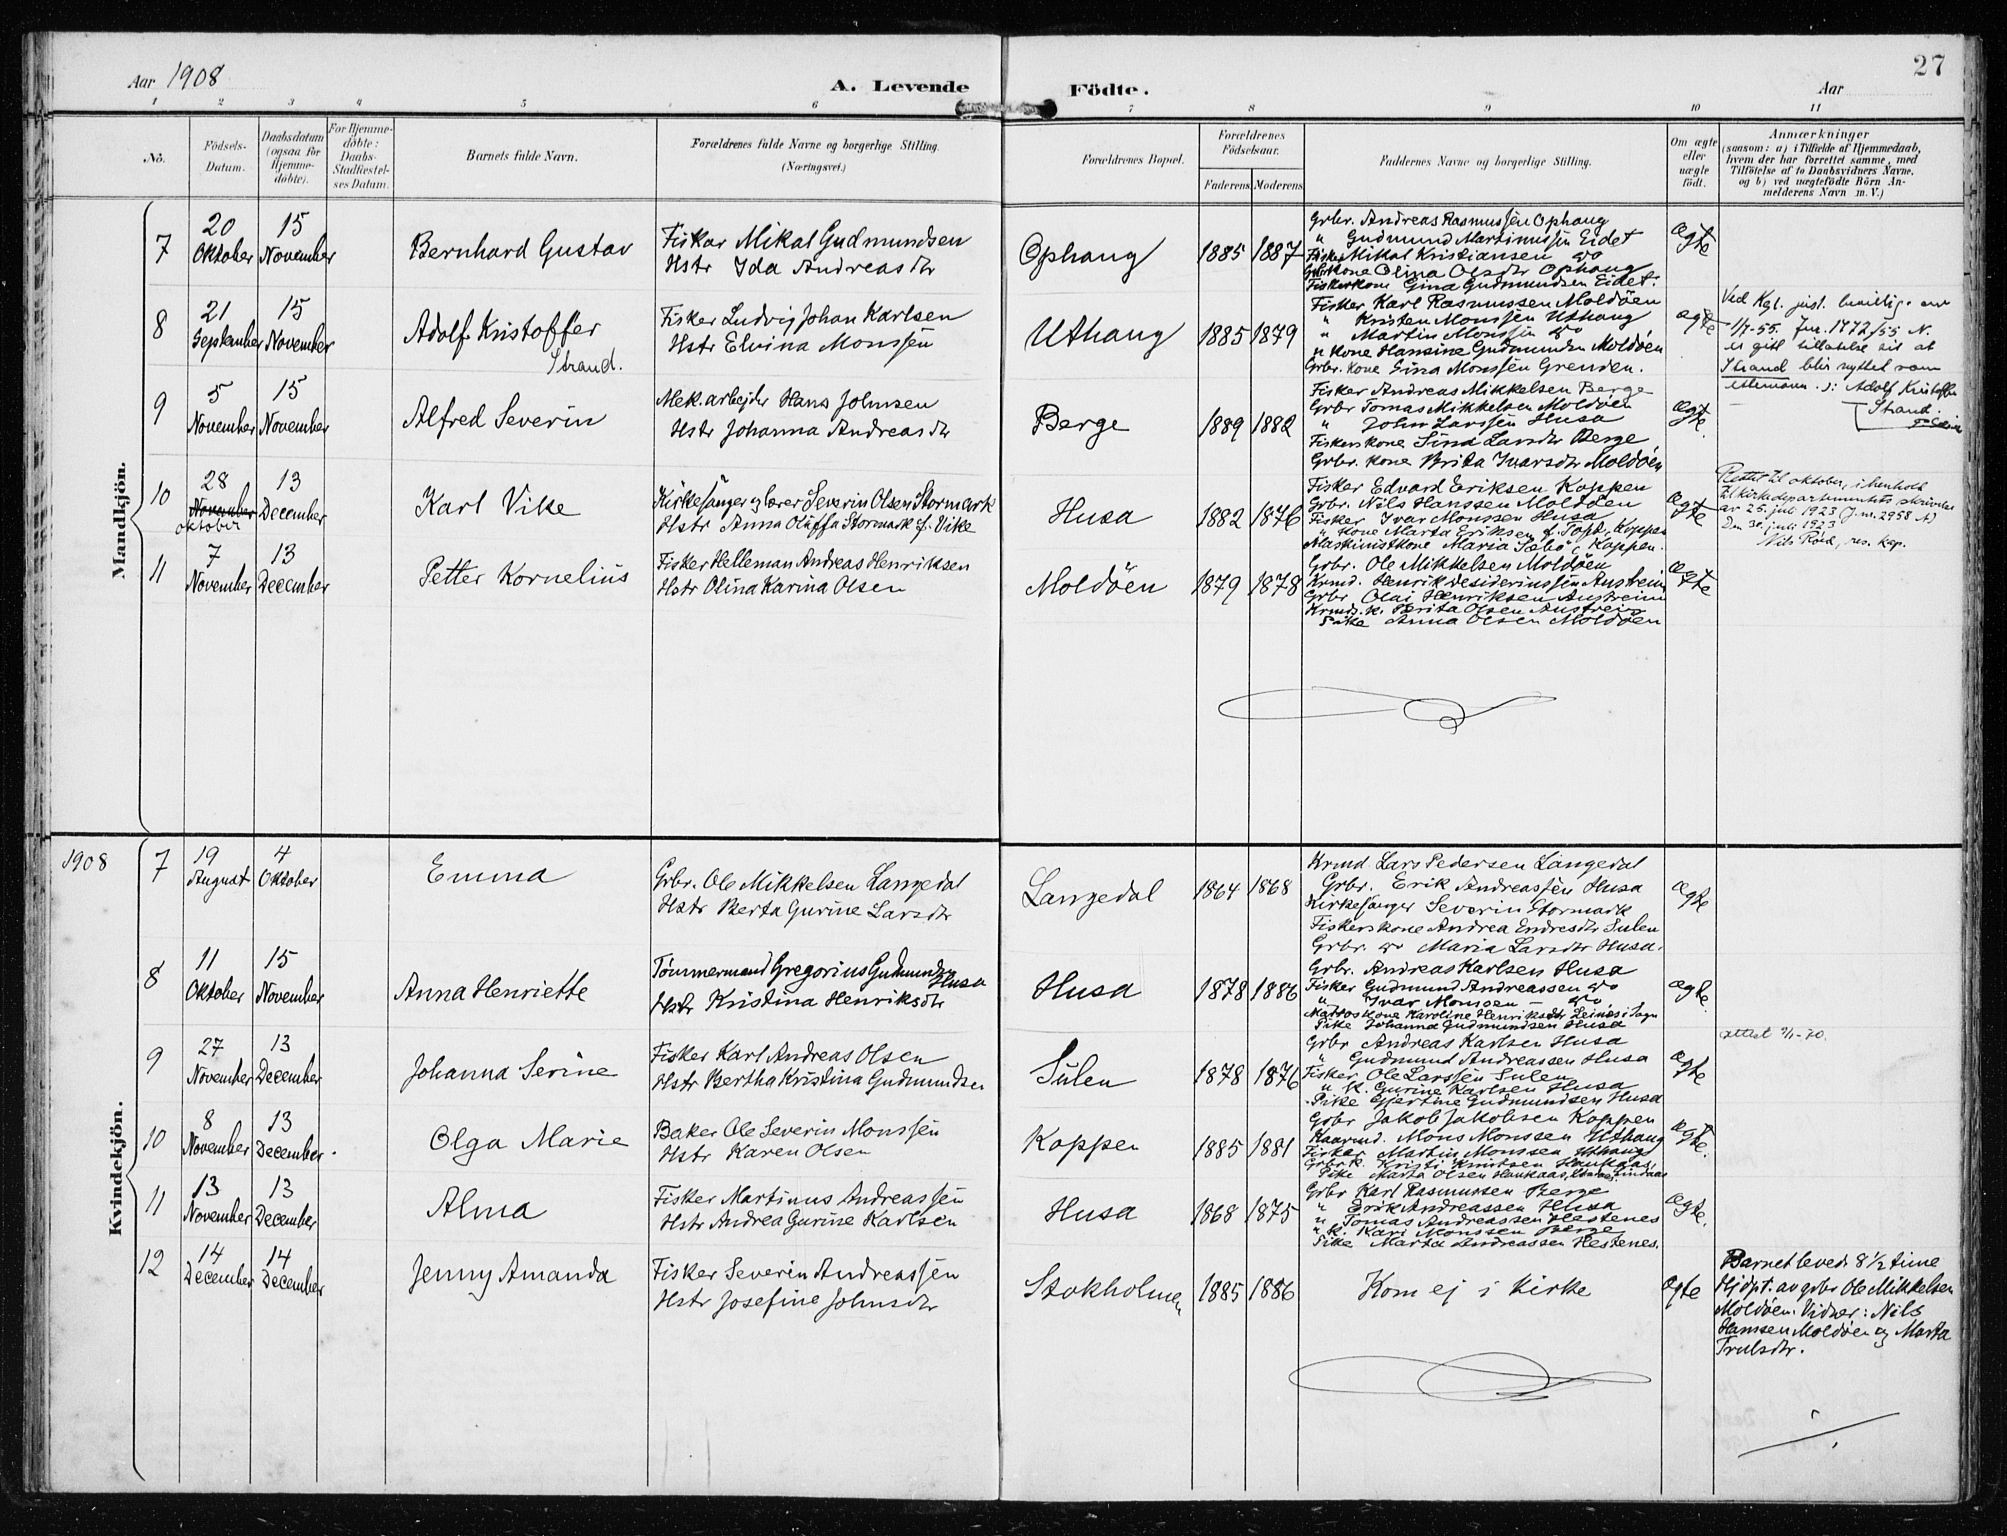 27
Aar 1908
A. Levende Födte.
Aar
1 2 3 4 5 6 7 8 9 10 11
No.
Födsels-Datum.
Daabsdatum (ogsaa for Hjemme-döbte).
For Hjemme-döbte: Daabs-Stadfæstel-ses Datum.
Barnets fulde Navn.
Forældrenes fulde Navne og borgerlige Stilling.
(Næringsvei.)
Forældrenes Bopæl.
Forældrenes Födselsaar.
Faderens. Moderens.
Faddernes Navne og borgerlige Stilling.
Om ægte eller uægte födt.
Anmærkninger
(saasom: a) i Tilfælde af Hjemmedaab,
hvem der har forrettet samme, med
Tilföielse af to Daabsvidners Navne,
og b) ved uægtefödte Börn An-
melderens Navn m. V.)
Mandkjön.
7
20 Oktober
15 November
Bernhard Gustav
Fisker Mikal Gudmundsen
Hstr Ida Andreasdtr
Ophaug
1885 1887
Grbr. Andreas Rasmussen Ophaug
" Gudmund Martinussen Eidet
Fisker Mikal Kristiansen do
Grbrkone Olina Olsdtr Ophaug
Fiskerkone Gina Gudmundsen Eidet.
ægte
8
21 September
15 November
Adolf Kristoffer
Strand.
Fisker Ludvig Johan Karlsen
Hstr Elvina Monssen
Uthaug
1885 1879
Fisker Karl Rasmussen Moldöen
" Kristen Monssen Uthaug
" Martin Monssen do
" Kone Hansine Gudmundsen Moldöen
Grbr. kone Gina Monssen Grenden.
ægte
Ved Kgl. just. bevillg. av
1/7-55. Jnr. 1772/55 N.
er gitt tillatelse til at
Strand blir nyttet som
etternavn. ɔ: Adolf Kristoffer
Strand.
9
5 November
15 November
Alfred Severin
Mek. arbejder Hans Johnsen
Hstr Johanna Andreasdtr
Berge
1889 1882
Fisker Andreas Mikkelsen Berge
Grbr Tomas Mikkelsen Moldöen
" John Larssen Husa
Fiskerskone Sina Larsdtr Berge
Grbr. kone Brita Ivarsdtr Moldöen
ægte.
10
28 November oktober
13 December
Karl Vike
Kirkesanger og lærer Severin Olsen Stormark
Hstr Anna Oluffa Stormark f. Vike
Husa
1882 1876
Fisker Edvard Eriksen Koppen
Grbr. Nils Hanssen Moldöen
Fisker Ivar Monssen Husa
" Kone Marta Eriksen f. Koppen
Maskinistkone Maria Sæbö, Koppen.
ægte
Rettet til oktober, i henhold
til kirkedepartementets skrivelse
av 25. juli 1923 (J.nr. 2958 A)
den 30. juli 1923
Nils Röd, res. kap.
11
7 November
13 December
Petter Kornelius
Fisker Helleman Andreas Henriksen
Hstr Olina Karina Olsen
Moldöen
1879 1878
Grbr. Ole Mikkelsen Moldöen
Krmd. Henrik Desideriussen Austreim
Grbr Olai Henriksen Austreim
Krmds. k. Berita Olsen Austreim
Pike Anna Olsen Moldöen
ægte
1908
Kvindekjön.
7
19 August
4 Oktober
Emma
Grbr. Ole Mikkelsen Langedal
Hstr Berta Gurine Larsdtr
Langedal
1864 1868
Krmd Lars Pedersen Langedal
Grbr. Erik Andreassen Husa
Kirkesanger Severin Stormark
Fiskerskone Andrea Endresdtr Sulen
Grbr. do Maria Larsdtr Husa.
ægte
8
11 Oktober
15 November
Anna Henriette
Tömmermand Gregorius Gudmundsen Husa
Hstr Kristina Henriksdtr
Husa
1878 1886
Grbr. Andreas Karlsen Husa
Fisker Gudmund Andreassen do
" Ivar Monssen — do
Matroskone Karoline Henriksdtr Leines i Sogn
Pike Johanna Gudmundsen Husa
ægte.
9
27 November
13 December
Johanna Serine
Fisker Karl Andreas Olsen
Hstr Bertha Kristina Gudmundsen
Sulen
1878 1876
Grbr Andreas Karlsen Husa
" Gudmund Andreassen Husa
Fisker Ole Larssen Sulen
" k. Gurine Karlsen Husa
Pike Gjertine Gudmundsen Husa
ægte
10
8 November
13 December.
Olga Marie
Baker Ole Severin Monssen
Hstr Karen Olsen
Koppen
1885 1881
Grbr Jakob Jakobsen Koppen
Kaarmd. Mons Monssen Uthaug
Fisker Martin Monssen Uthaug
Grbr k. Kristi Knutsen Haukaas
Pike Marta Olsen Haukaas, Lindaas
ægte.
11
13 November
13 December
Alma
Fisker Martinus Andreassen
Hstr Andrea Gurine Karlsen
Husa
1868 1875
Grbr Karl Rasmussen Berge
" Erik Andreassen Husa
" Tomas Andreassen Hestenes
" k. Kari Monssen Berge
Pike Marta Andreassen Hestenes.
ægte.
12
14 December
14 December
Jenny Amanda
Fisker Severin Andreassen
Hstr Josefine Johnsdtr
Stokholmen
1885 1886
Kom ej i kirke
ægte
Barnet leved 8 1/2 time
Hjdpt. av grbr Ole Mikkelsen
Moldöen. Vidner: Nils
Hansen Moldöen og Marta
Trulsdtr.